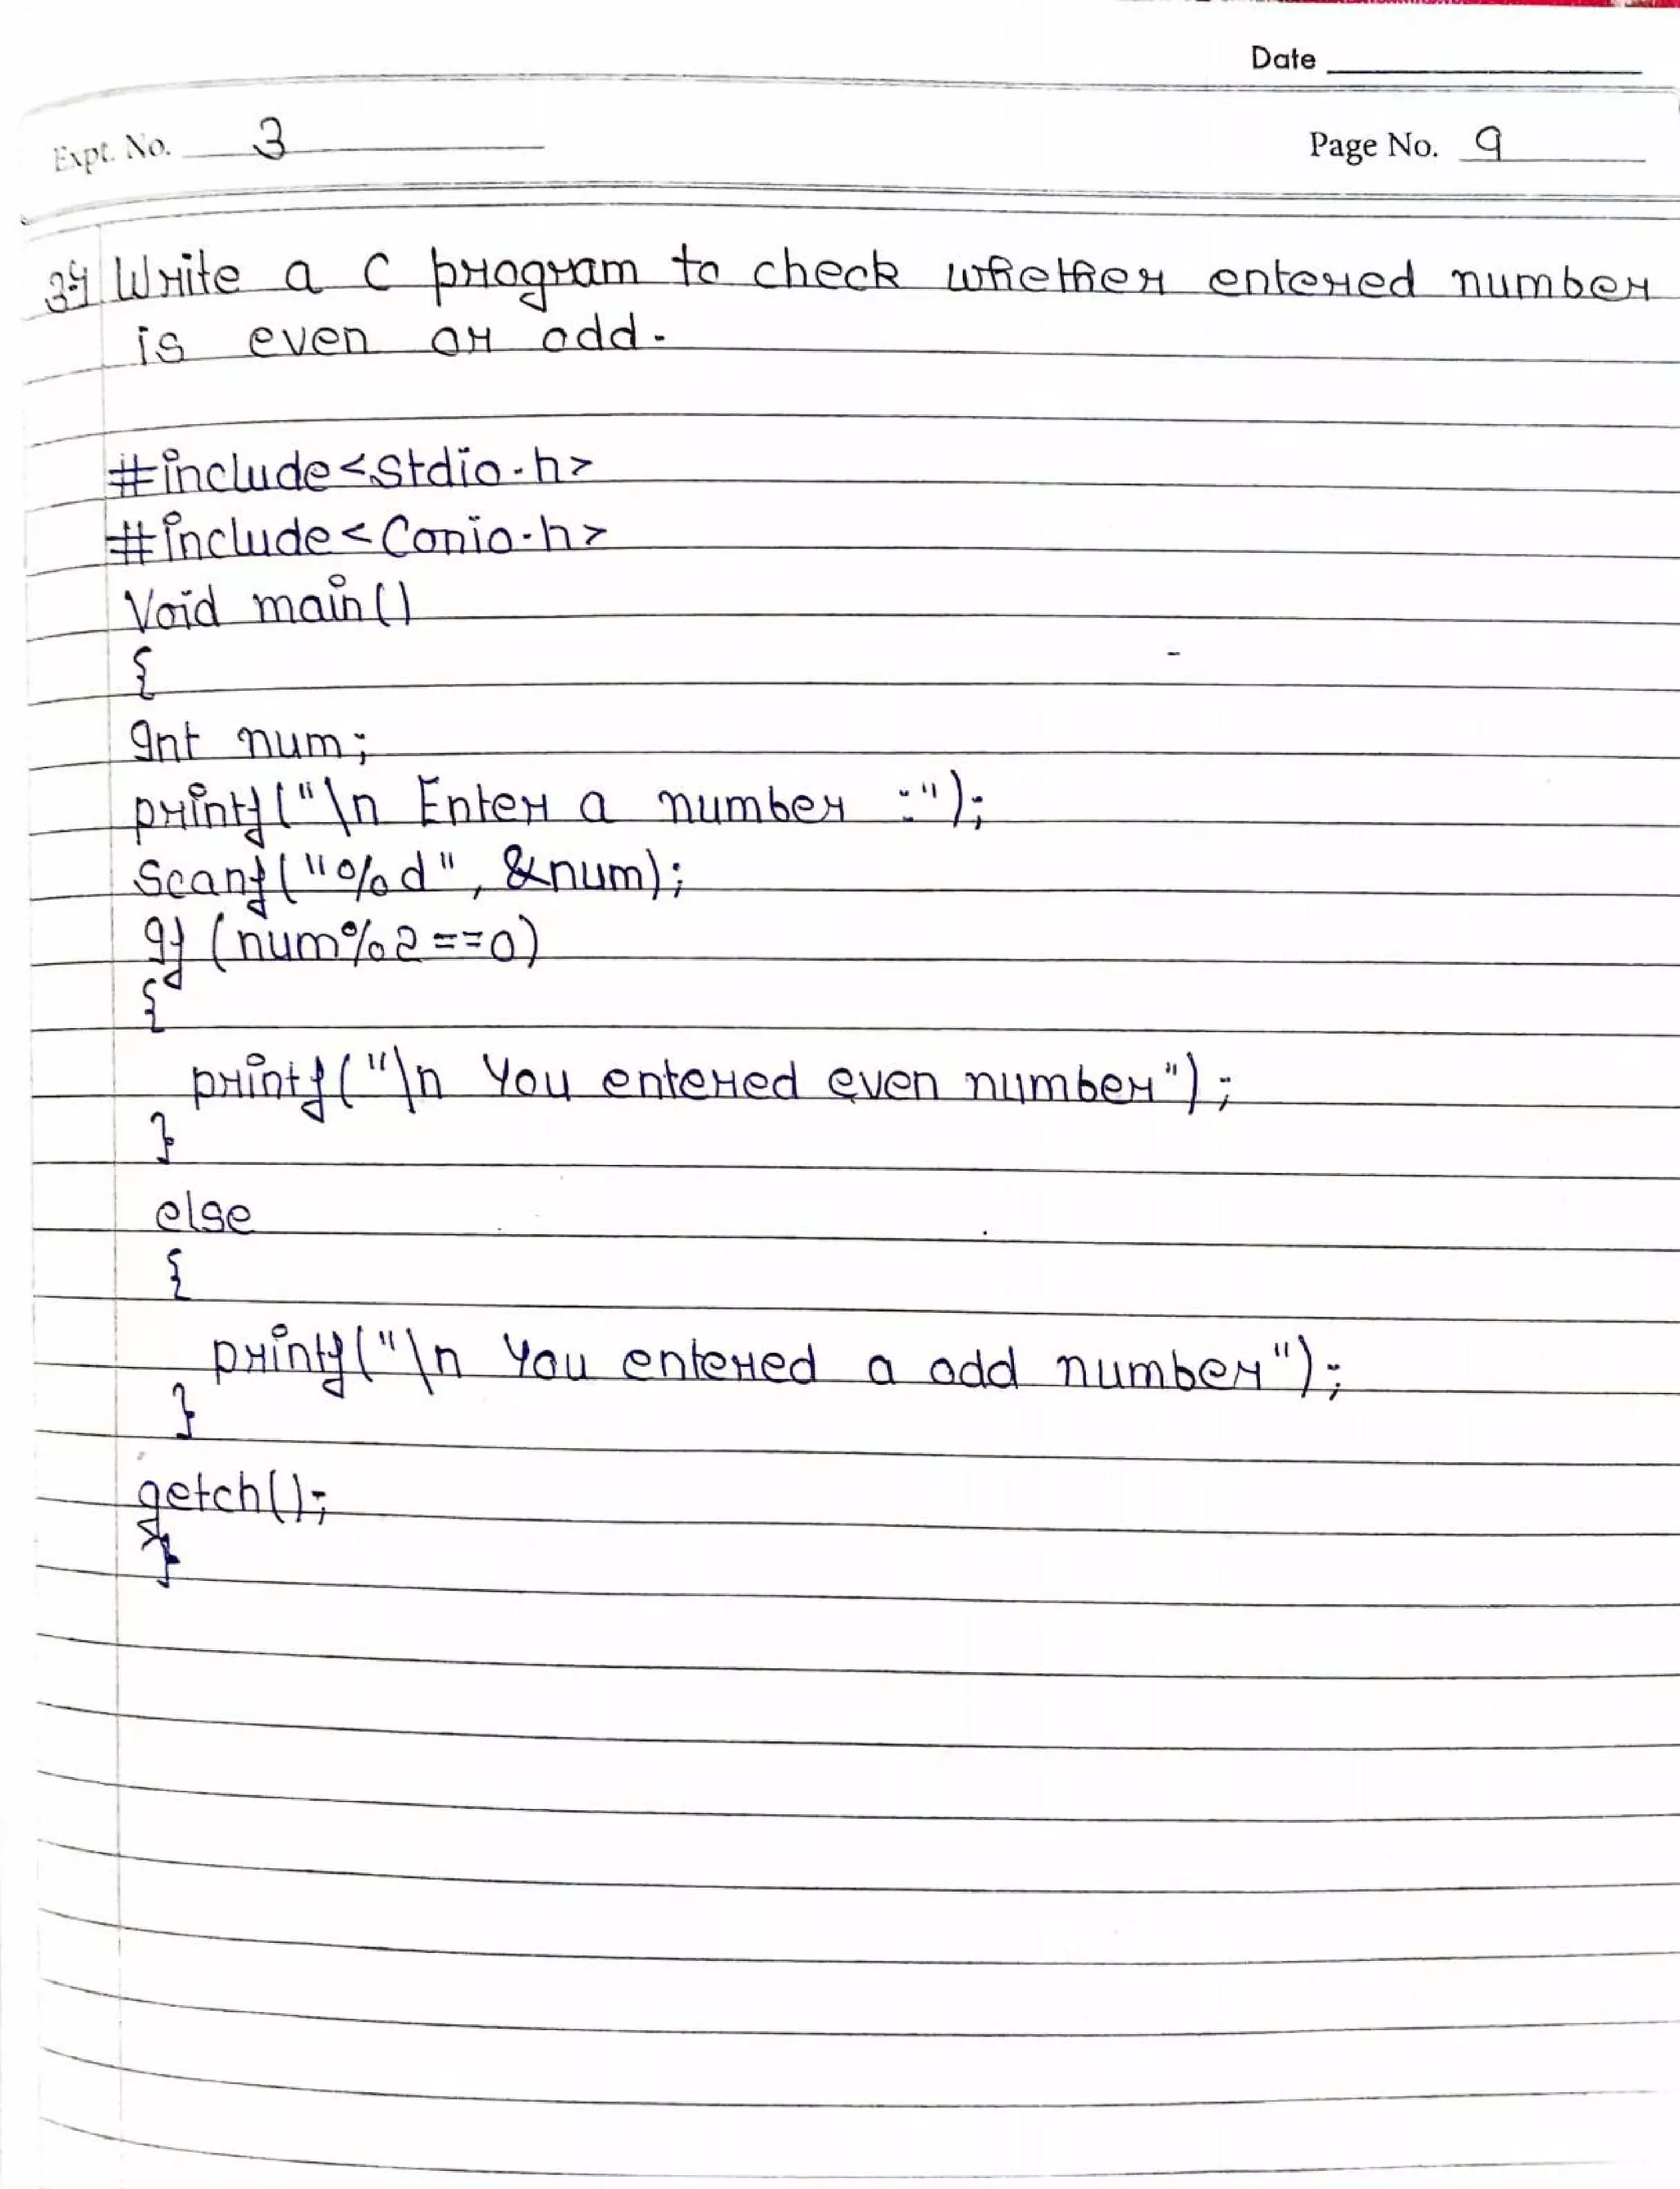 Date
Expt. No. 3
Page No. 9
3} Write a C program to check whether entered number
is even or odd.
#include<stdio.h>
#include<Conio.h>
Void main()
{
Int num;
printf("\n Enter a number :");
Scanf("%d", &num);
If (num%2==0)
{
printf("\n You entered even number");
}
else
{
printf("\n You entered a odd number");
}
getch();
}